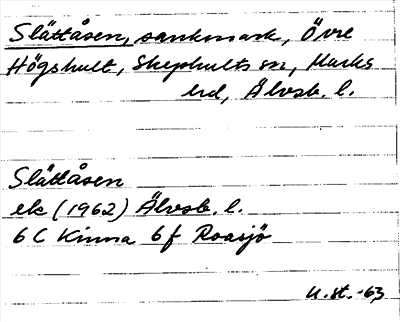 Slättåsen, sankmark, Övre
Högshult, Skephults sn, Marks
hd, Älvsb. l.
Slättåsen
ek (1962) Älvsb. l.
6 C Kinna 6 f Roasjö
U. st. -63